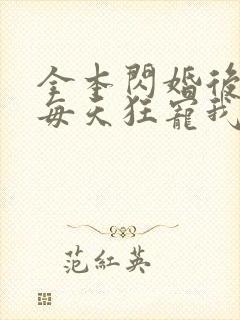 全本閃婚後
每天狂寵我
范紅英